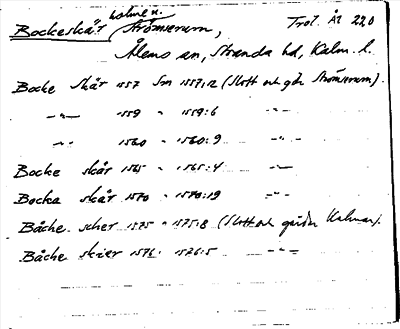 holme n.
Bockeskär, Strömserum, Trol. ÅÏ 220
Ålems sn, Stranda hd, Kalm. l.
Bocke Skär 1557 Sm 1557:12 (Slott och gdr Strömserum).
—"— 1559 " 1559:6 —"—
—"— 1560 " 1560:9 —"—
Bocke skär 1565 " 1565:4 —"—
Bocka skär 1570 " 1570:19 —"—
Båche scher 1575 " 1575:8 (Slott och gårdar Kalmar).
Båche skier 1576 " 1576:5 —"—